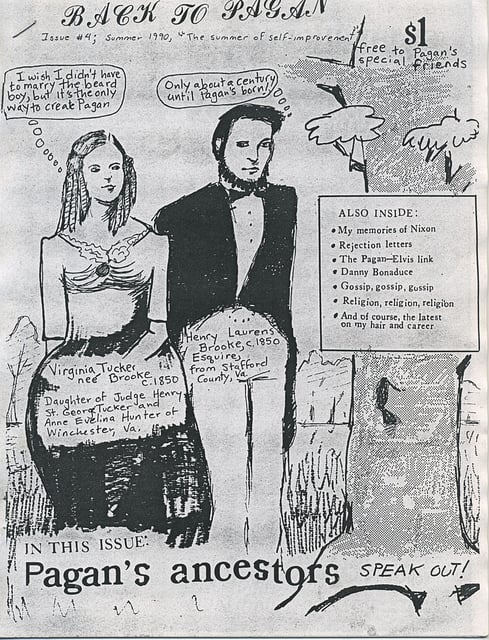 BACK TO PAGAN
Issue #4; Summer 1990, "The summer of self-improvement"
$1
free to Pagan's
special friends
I wish I didn't have
to marry the beard
boy, but it's the only
way to creat Pagan
Only about a century
until Pagan's born!
ALSO INSIDE:
• My memories of Nixon
• Rejection letters
• The Pagan—Elvis link
• Danny Bonaduce
• Gossip, gossip, gossip
• Religion, religion, religion
• And of course, the latest
on my hair and career
Virginia Tucker
neé Brooke
c. 1850
Daughter of Judge Henry
St. George Tucker and
Anne Evelina Hunter of
Winchester, Va.
Henry Laurens
Brooke, c. 1850
Esquire,
from Stafford
County, Va.
IN THIS ISSUE:
Pagan's ancestors SPEAK OUT!